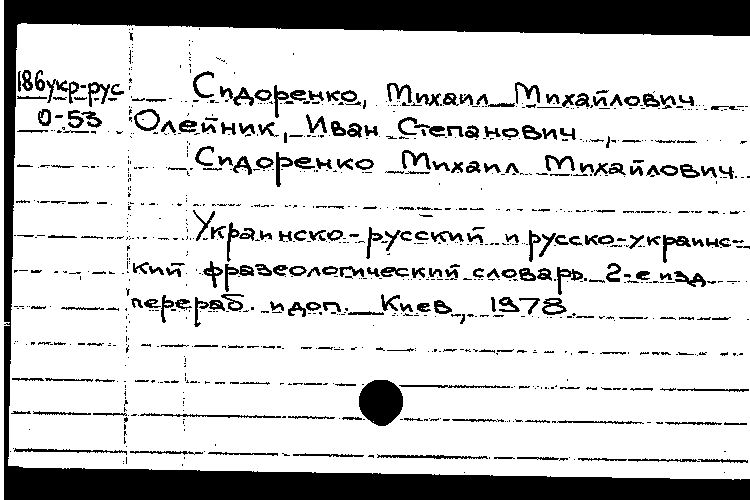 186укр-рус
О-53
Сидоренко, Михаил Михайлович
Олейник, Иван Степанович,
Сидоренко Михаил Михайлович
Украинско-русский и русско-украинс-
кий фразеологический словарь. 2-е изд
перераб. и доп. Киев, 1978.